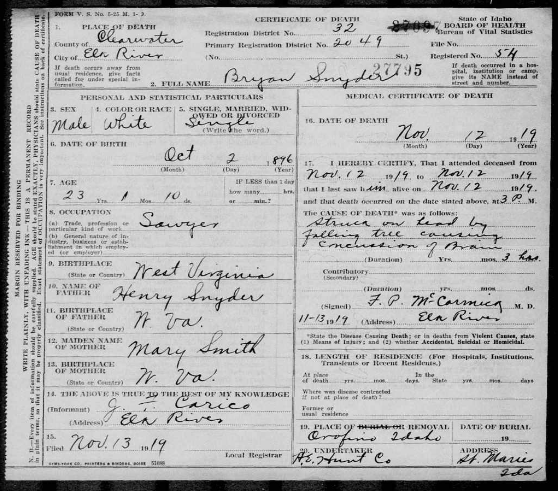 FORM V. S. No. 5-25 M. 1- 9.
CERTIFICATE OF DEATH
State of Idaho
BOARD OF HEALTH
Bureau of Vital Statistics
1. PLACE OF DEATH
County of Clearwater
City of Elk River
Registration District No. 32
Primary Registration District No. 2049
(No. St.)
File No.
Registered No. 54
27795
If death occurs away from usual residence, give facts called for under special information.
If death occurred in a hospital, institution or camp, give its NAME instead of street and number.
2. FULL NAME Bryan Snyder
PERSONAL AND STATISTICAL PARTICULARS
3. SEX Male
4. COLOR OR RACE White
5. SINGLE, MARRIED, WIDOWED OR DIVORCED Single
(Write the word.)
6. DATE OF BIRTH
Oct 2 1896
(Month) (Day) (Year)
7. AGE
23 Yrs. 1 Mos. 10 ds.
IF LESS than 1 day
how many hrs.
or min.?
8. OCCUPATION Sawyer
(a) Trade, profession or particular kind of work.
(b) General nature of industry, business or establishment in which employed (or employer)
9. BIRTHPLACE
(State or Country) West Virginia
10. NAME OF FATHER Henry Snyder
11. BIRTHPLACE OF FATHER W. Va.
(State or Country)
12. MAIDEN NAME OF MOTHER Mary Smith
13. BIRTHPLACE OF MOTHER W. Va.
(State or Country)
14. THE ABOVE IS TRUE TO THE BEST OF MY KNOWLEDGE
(Informant) Carico
(Address) Elk River
15.
Filed Nov. 13 1919
Local Registrar
MEDICAL CERTIFICATE OF DEATH
16. DATE OF DEATH
Nov. 12 1919
(Month) (Day) (Year)
17. I HEREBY CERTIFY, That I attended deceased from
Nov. 12 1919 to Nov. 12 1919.
that I last saw him alive on Nov. 12 1919.
and that death occurred on the date stated above, at 3 P M.
The CAUSE OF DEATH* was as follows:
Struck on head by
falling tree causing
Concussion of Brain
(Duration) Yrs. mos. 3 hrs.
Contributory
(Secondary)
(Duration) yrs. mos. ds.
(Signed) F. P. McCormick M. D.
11-13 1919 (Address) Elk River
*State the Disease Causing Death; or in deaths from Violent Causes, state (1) Means of Injury; and (2) whether Accidental, Suicidal or Homicidal.
18. LENGTH OF RESIDENCE (For Hospitals, Institutions, Transients or Recent Residents.)
At place of death yrs. mos. days. In the State yrs. mos. days
Where was disease contracted if not at place of death?
Former or usual residence
19. PLACE OF BURIAL OR REMOVAL
Orofino Idaho
DATE OF BURIAL
19
20. UNDERTAKER
A.E. Hunt Co
ADDRESS
St. Maries
Ida
MARGIN RESERVED FOR BINDING
WRITE PLAINLY, WITH UNFADING INK—THIS IS A PERMANENT RECORD